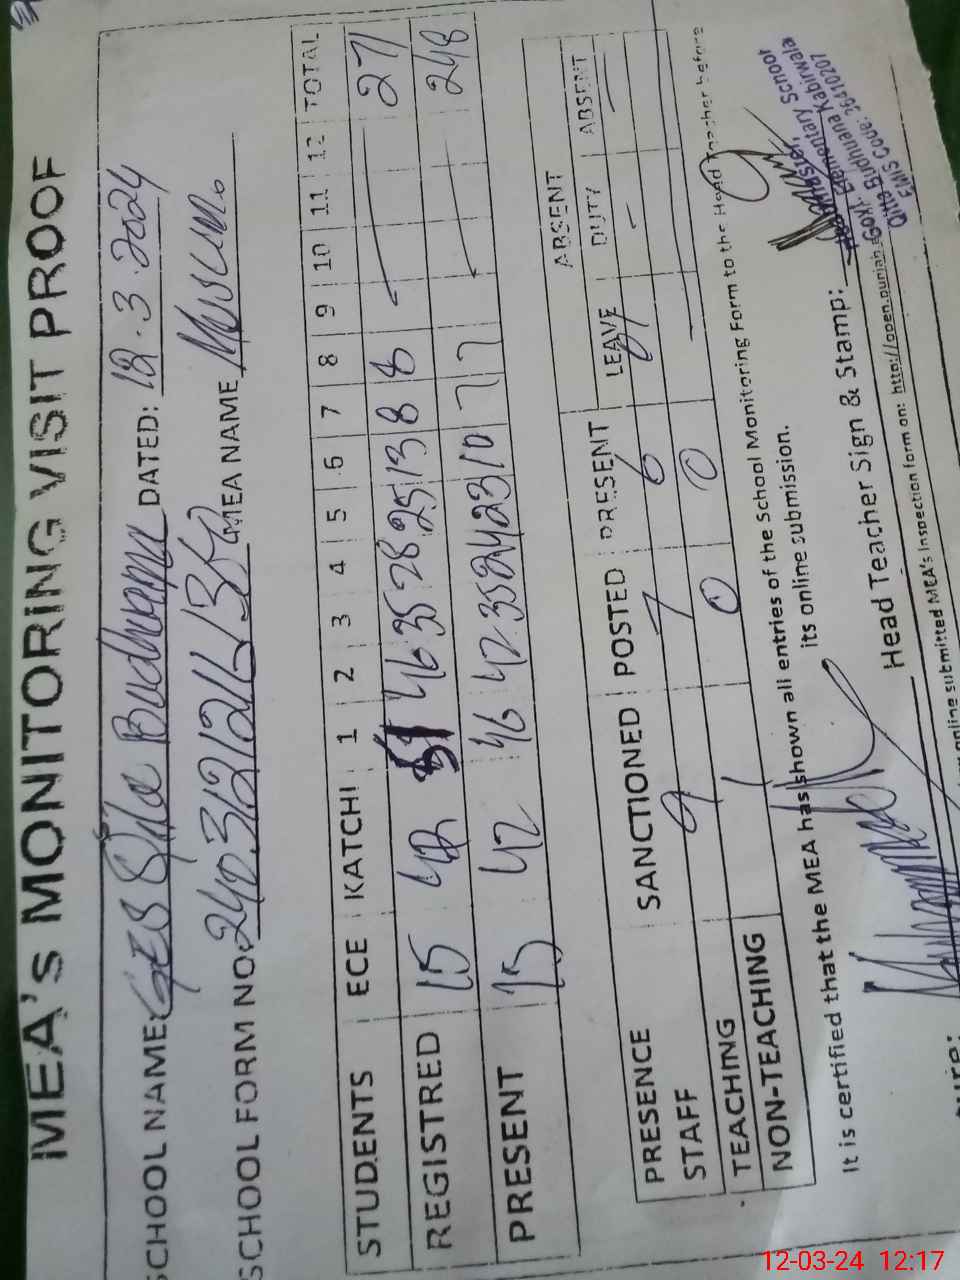 MEA's MONITORING VISIT PROOF
SCHOOL NAME: GES Qila Budhuana DATED: 12.3.2024
SCHOOL FORM NO. MEA NAME
STUDENTS ECE KATCHI 1 2 3 4 5 6 7 8 9 10 11 12 TOTAL
REGISTRED 15 42 51 46 35 28 25 13 8 8 - 271
PRESENT 15 42 46 42 35 24 23 10 7 7 - 248
PRESENCE SANCTIONED POSTED PRESENT ABSENT
STAFF LEAVE DUTY ABSENT
TEACHING 9 7 6 01 - -
NON-TEACHING 1 0 0
It is certified that the MEA has shown all entries of the School Monitoring Form to the Head Teacher before
its online submission.
Head Teacher Sign & Stamp:
Headmaster,
Govt. Elementary School
Qilla Budhuana Kabirwala
EMIS Code: 36410207
online submitted MEA's Inspection form on: http://open.punjab.
12-03-24 12:17